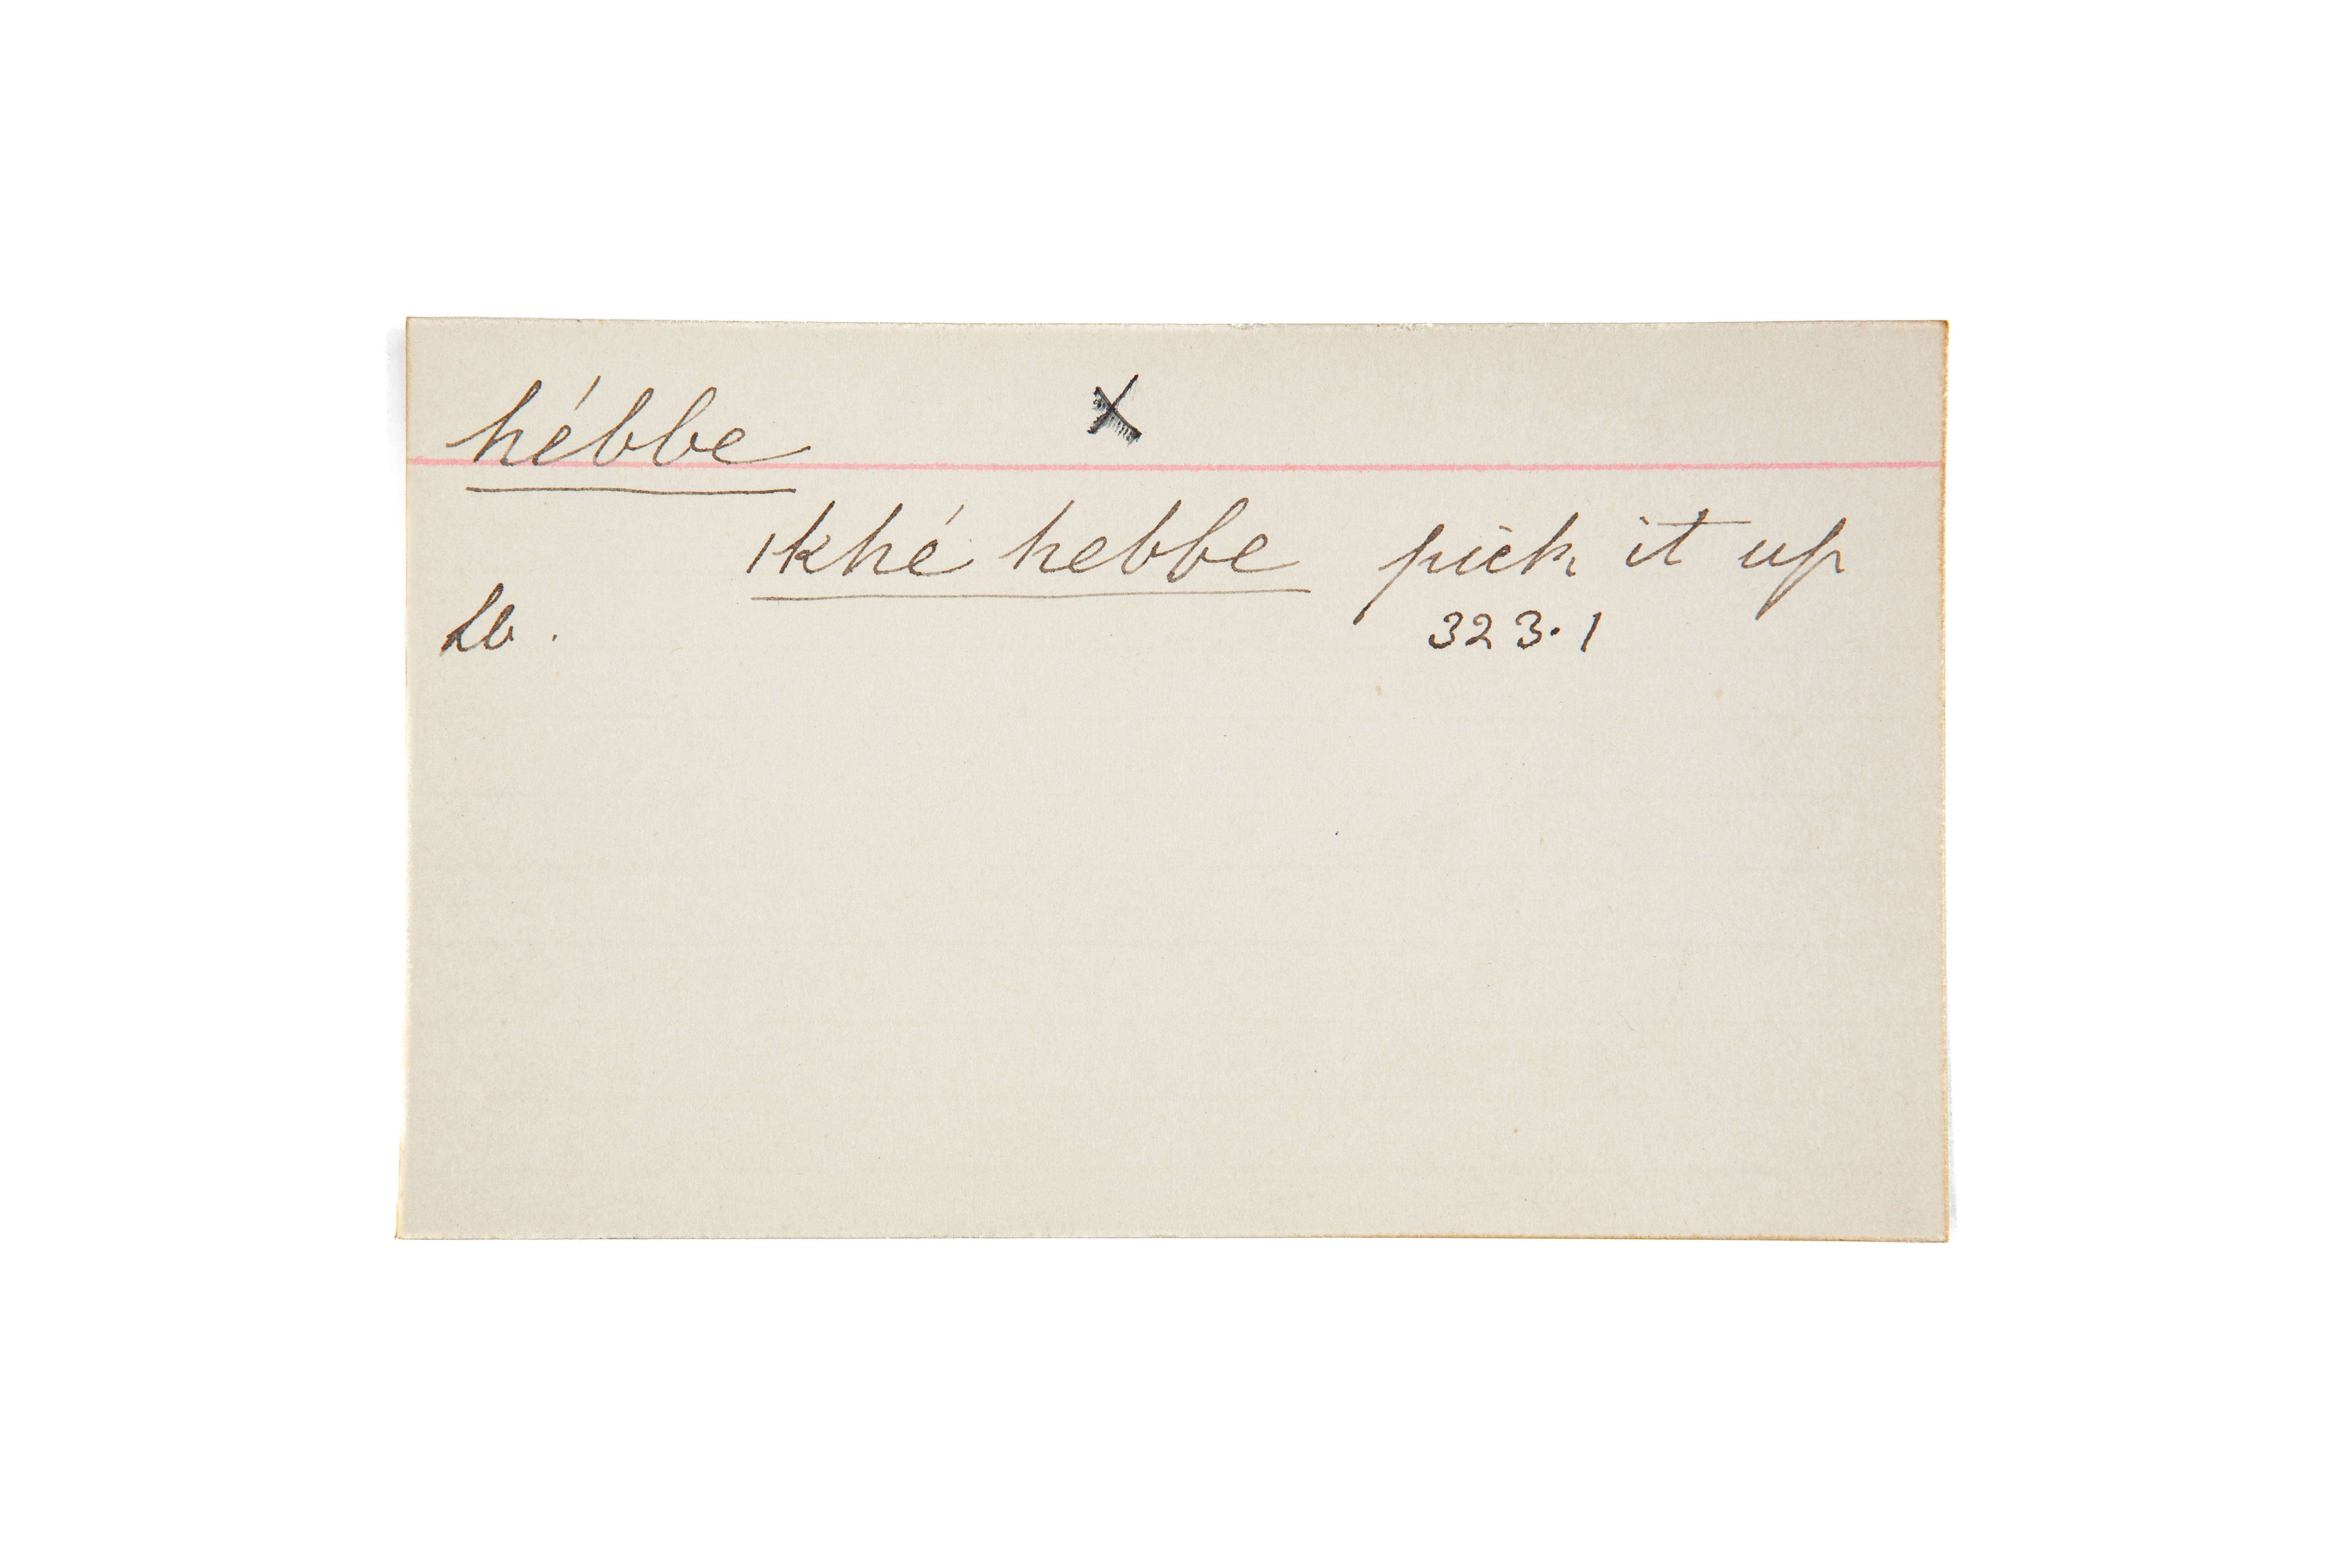 hébbe X
ıkhé hebbe pick it up
Lb. 323.1